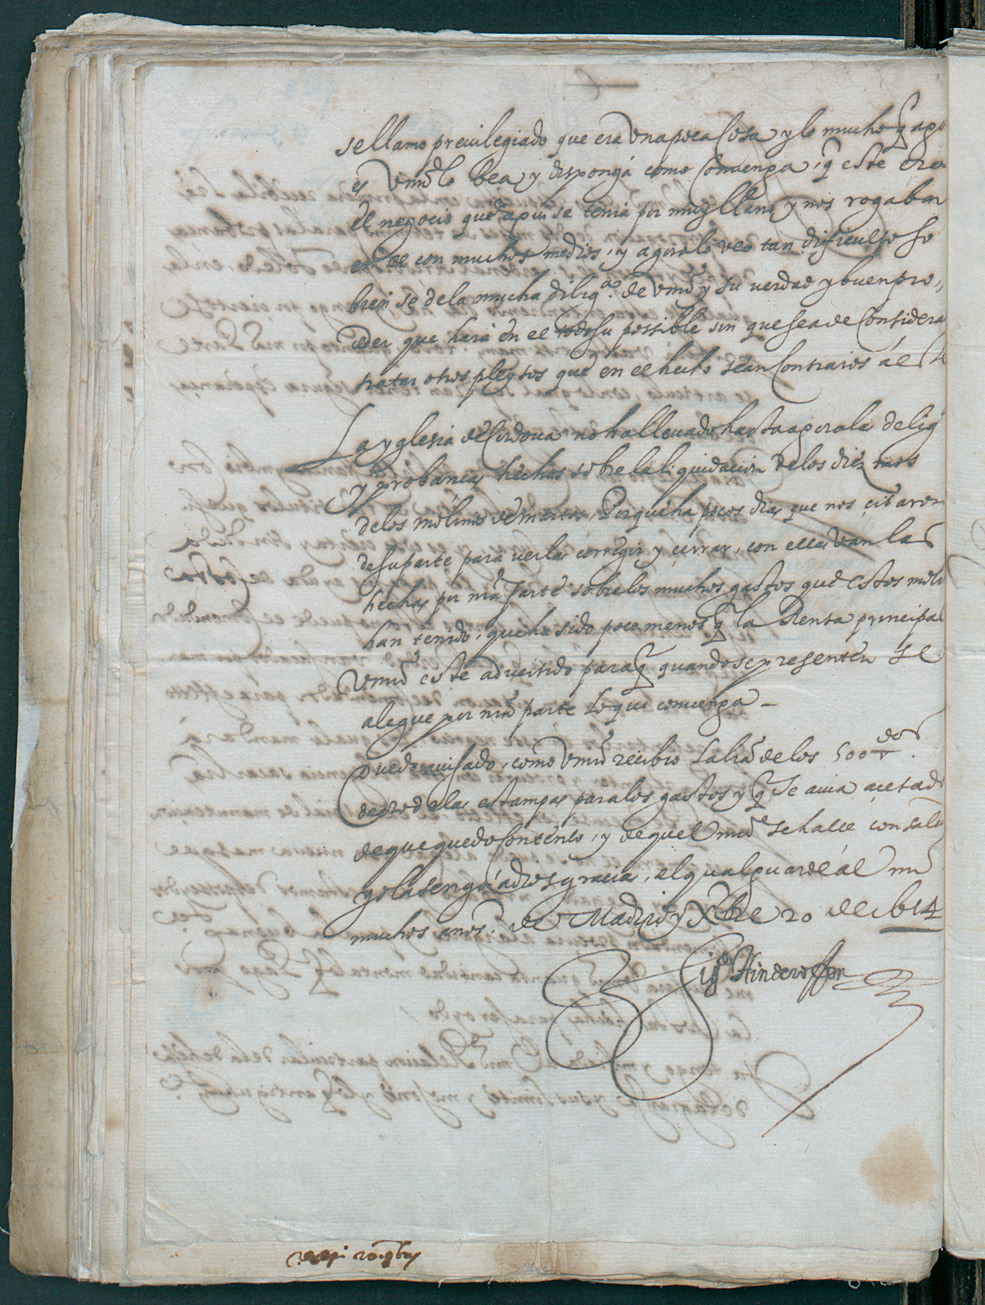 se llamo previlegiado que era una poca cosa y lo mucho q̃ apo
es Vmd lo bea, y disponga como convenga, q̃ este era
el negocio que aqui se tenia por muy llano y nos rogaban
en el con muchos medios, y agora lo veo tan dificultoso
de la mucha dilig.ª de Vmd y su verdad y buen pro,,
ceder que hará en el todo su posible sin que sea de considera
tratar otros pleytos que en el hecho sean contrarios ál
La yglesia de Cordova no ha llevado hasta agora la delig
y probanças hechas sobre la liquidacion de los diez mos
de los molinos de Martos, Porque ha pocos dias que nos çitaron
de su parte para verla corregir y çerrar, con ellas van las
hechas por nrã parte sobre los muchos gastos que estos moli
han tenido, que ha sido poco menos q̃ la Renta principal
Vmd este advertido paraq̃ quando se presenten se
alegue por nrã parte lo que convenga –
Quedo avisado, como Vmd recibio la lrã de los 500 dos
de las estampas para los gastos y q̃ se avia açetado
de que quedo contento, y de que Vmd se halle con salu
y gracia, el qual guarde ál
muchos años. de Madrid y Xbre 20 de 1614